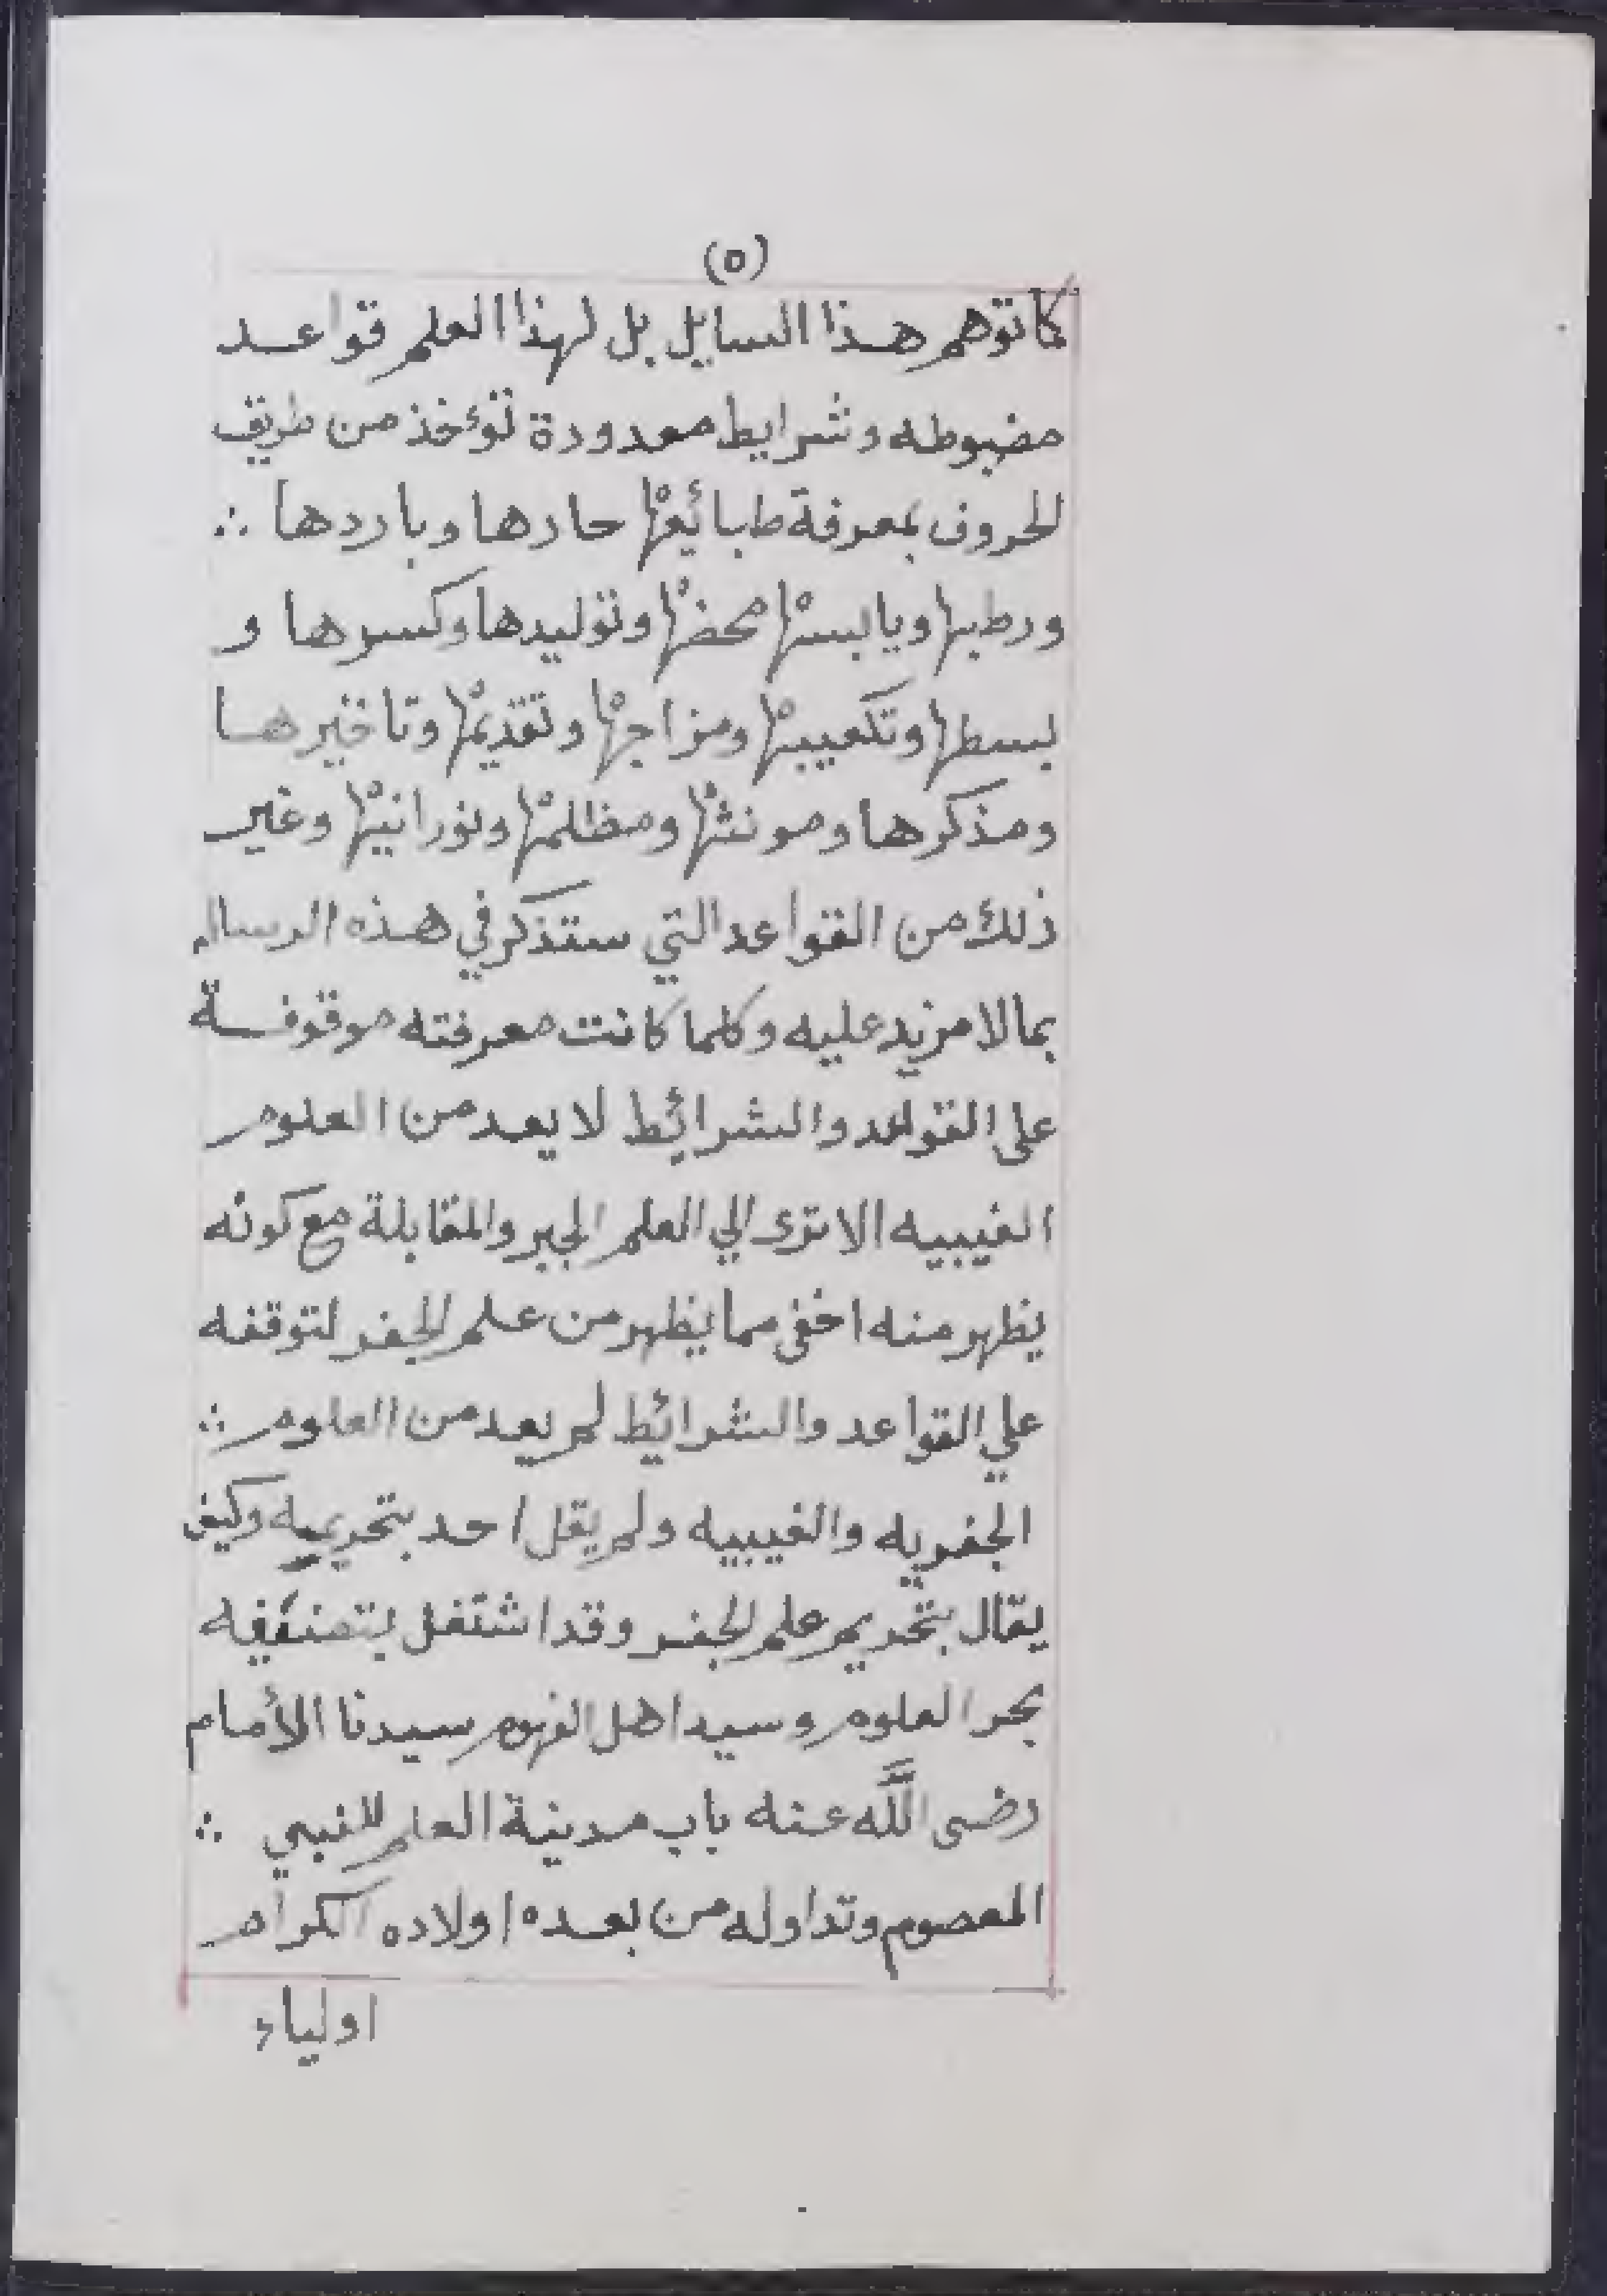 (٥)
كما توهم هذا السايل بل لهذا العلم قواعد
مضبوطه وشرايط معدودة تؤخذ من طريق
الحروف بمعرفة طبائعها حارها وباردها ∴
ورطبها ويابستها محضها وتوليدها وكسرها و
بسطها وتكعيبها ومزاجها وتقديمها وتاخيرها
ومذكرها ومونثها ومظلمتها ونورانيتها وغير
ذلك من القواعد التي ستذكر في هذه الرساله
بما لا مزيد عليه وكلما كانت معرفته موقوفة
على القواعد والشرائط لا يعد من العلوم
الغيبيه الا ترى الي العلم الجبر والمقابلة مع كونه
يظهر منه اخفى مما يظهر من علم الجفر لتوقفه
علي القواعد والشرائط لم يعد من العلوم ∴
الجفريه والغيبيه ولم يقل احد بتحريمه وكيف
يقال بتحريم علم الجفر وقد اشتغل بتصنيفه
بحر العلوم وسيد اهل الفهوم سيدنا الأمام
رضى اللَّه عنه باب مدينة العلم للنبي ∴
المعصوم وتداوله من بعده اولاده الكرام
اولياء